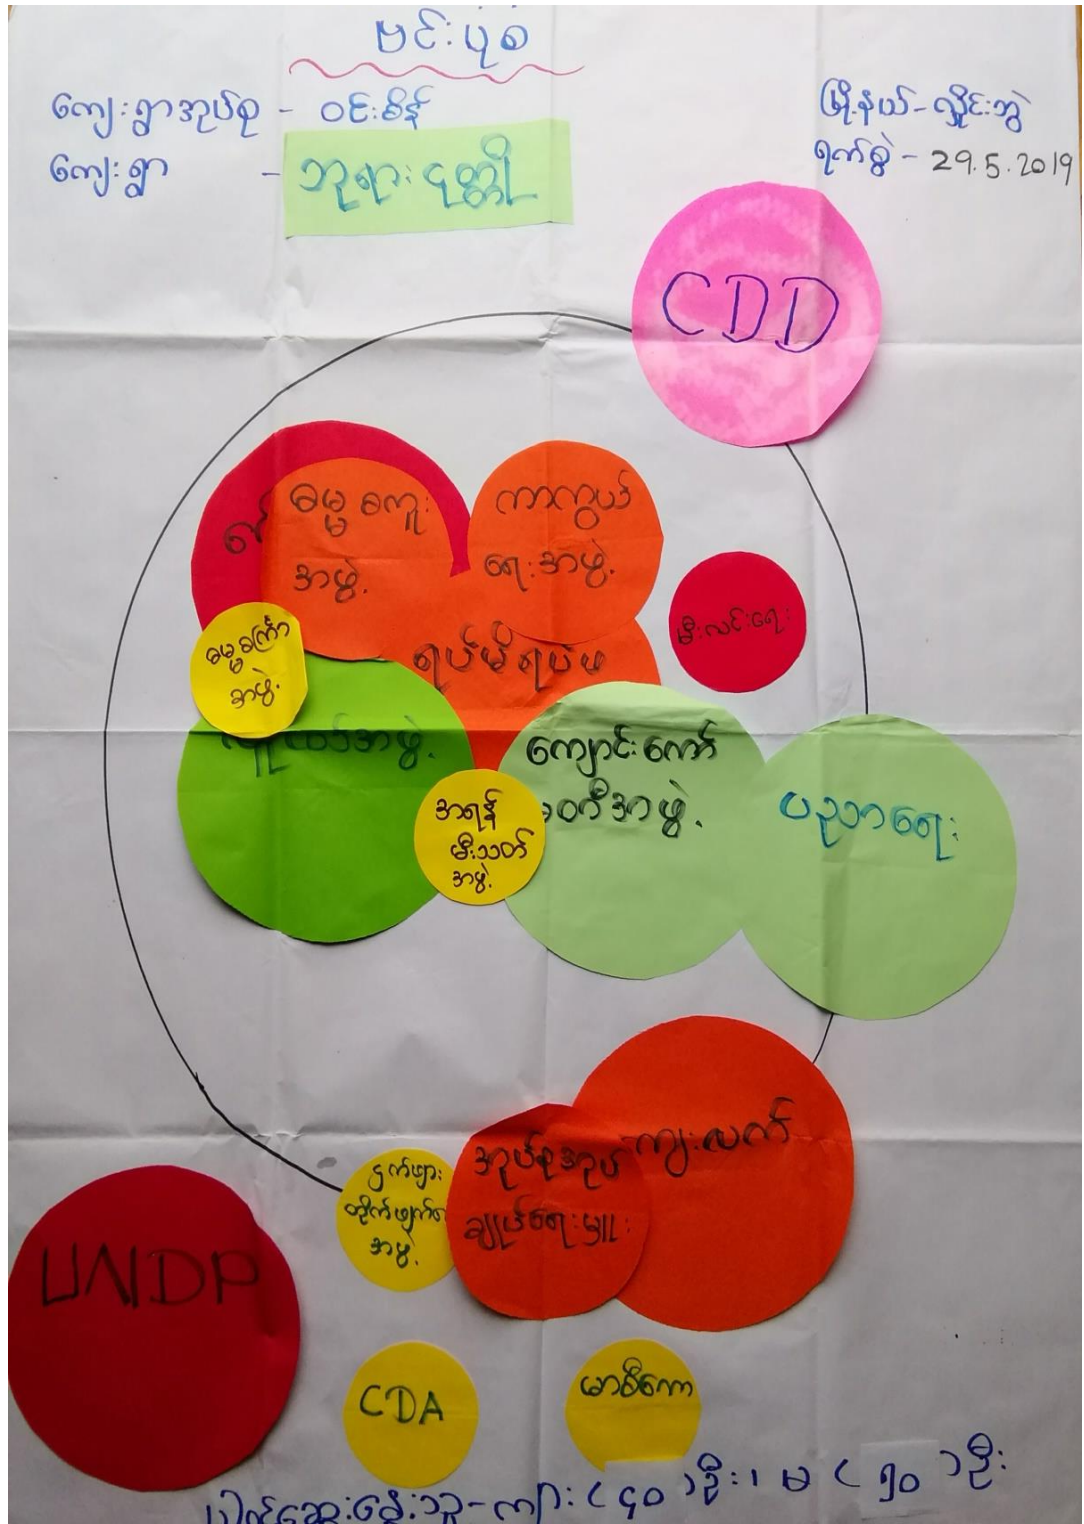 ဗင်းပုံစ
ကျေးရွာအုပ်စု - ဝင်းစိန်
မြို့နယ်-လှိုင်းဘွဲ
ကျေးရွာ - ဘုရားငုတ္တို
ရက်စွဲ - 29.5.2019
CDD
ဓမ္မစကူး
အဖွဲ့
ကာကွယ်
ရေးအဖွဲ့
မီးလင်းရေး
ရပ်မိရပ်ဖ
ဓမ္မစင်္ကြာ
အဖွဲ့
အဖွဲ့
ကျောင်းကော်
မတီအဖွဲ့
ပညာရေး
အရန်
မီးသတ်
အဖွဲ့
ကျးလက်
အုပ်စုအုပ်
ချုပ်ရေးမှူး
ငှက်ဖျား
တိုက်ဖျက်ရေ
အဖွဲ့
UNDP
CDA
မာစီကော
ပါဝင်ဆွေးနွေးသူ-ကျား(၄၀)ဦး၊ မ(၅၀)ဦး